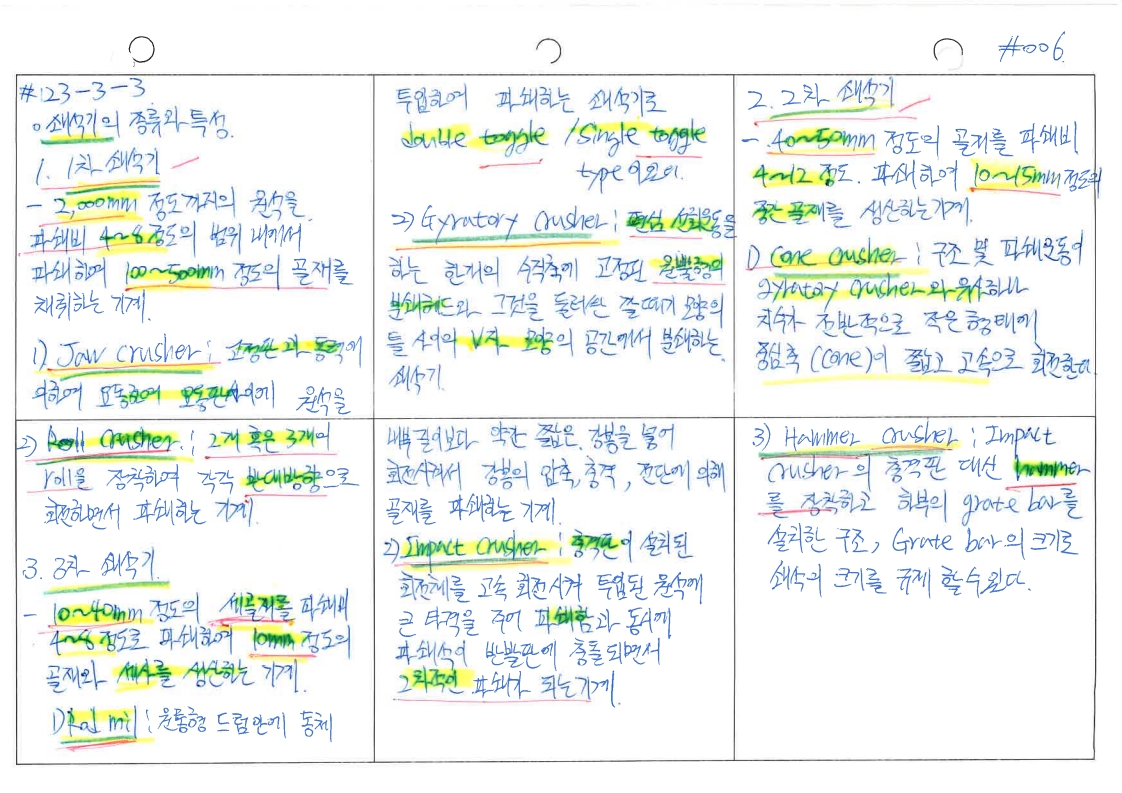 #006
#123-3-3
○ 쇄석기의 종류와 특성.
1. 1차 쇄석기
- 2,000mm 정도까지의 원석을
파쇄비 4~8 정도의 범위 내에서
파쇄하여 100~500mm 정도의 골재를
채취하는 기계.
1) Jaw crusher ; 고정판과 동력에
의하여 요동하여 요동판사이에 원석을
투입하여 파쇄하는 쇄석기로
double toggle / Single toggle
type 이있다.
2) Gyratory crusher ; 편심 선회운동을
하는 한개의 수직축에 고정된 원뿔형의
분쇄헤드와 그것을 둘러싼 깔때기 모양의
틀 사이의 V자 모양의 공간에서 분쇄하는
쇄석기.
2. 2차 쇄석기
- 40~50mm 정도의 골재를 파쇄비
4~12 정도. 파쇄하여 10~15mm정도의
중간 골재를 생산하는기계.
1) Cone crusher ; 구조 및 파쇄운동이
gyratory crusher와 유사하나
치수가 전반적으로 작은 형태에
중심축 (cone)이 짧고 고속으로 회전한다.
2) Roll crusher ; 2개 혹은 3개의
roll을 장착하여 각각 반대방향으로
회전하면서 파쇄하는 기계.
3. 3차 쇄석기.
- 10~40mm 정도의 세골재를 파쇄비
4~8 정도로 파쇄하여 10mm 정도의
골재와 세사를 생산하는 기계.
1) Rod mil ; 원통형 드럼안에 동체
내부길이보다 약간 짧은. 강봉을 넣어
회전시켜서 강봉의 압축, 충격, 전단에 의해
골재를 파쇄하는 기계.
2) Impact crusher ; 충격판이 설치된
회전체를 고속 회전시켜 투입된 원석에
큰 타격을 주어 파쇄함과 동시에
파쇄석이 반발판에 충돌되면서
2차적인 파쇄가 되는기계.
3) Hammer crusher ; Impact
crusher의 충격판 대신 hammer
를 장착하고 하부의 grate bar를
설치한 구조, Grate bar의 크기로
쇄석의 크기를 규제 할수있다.